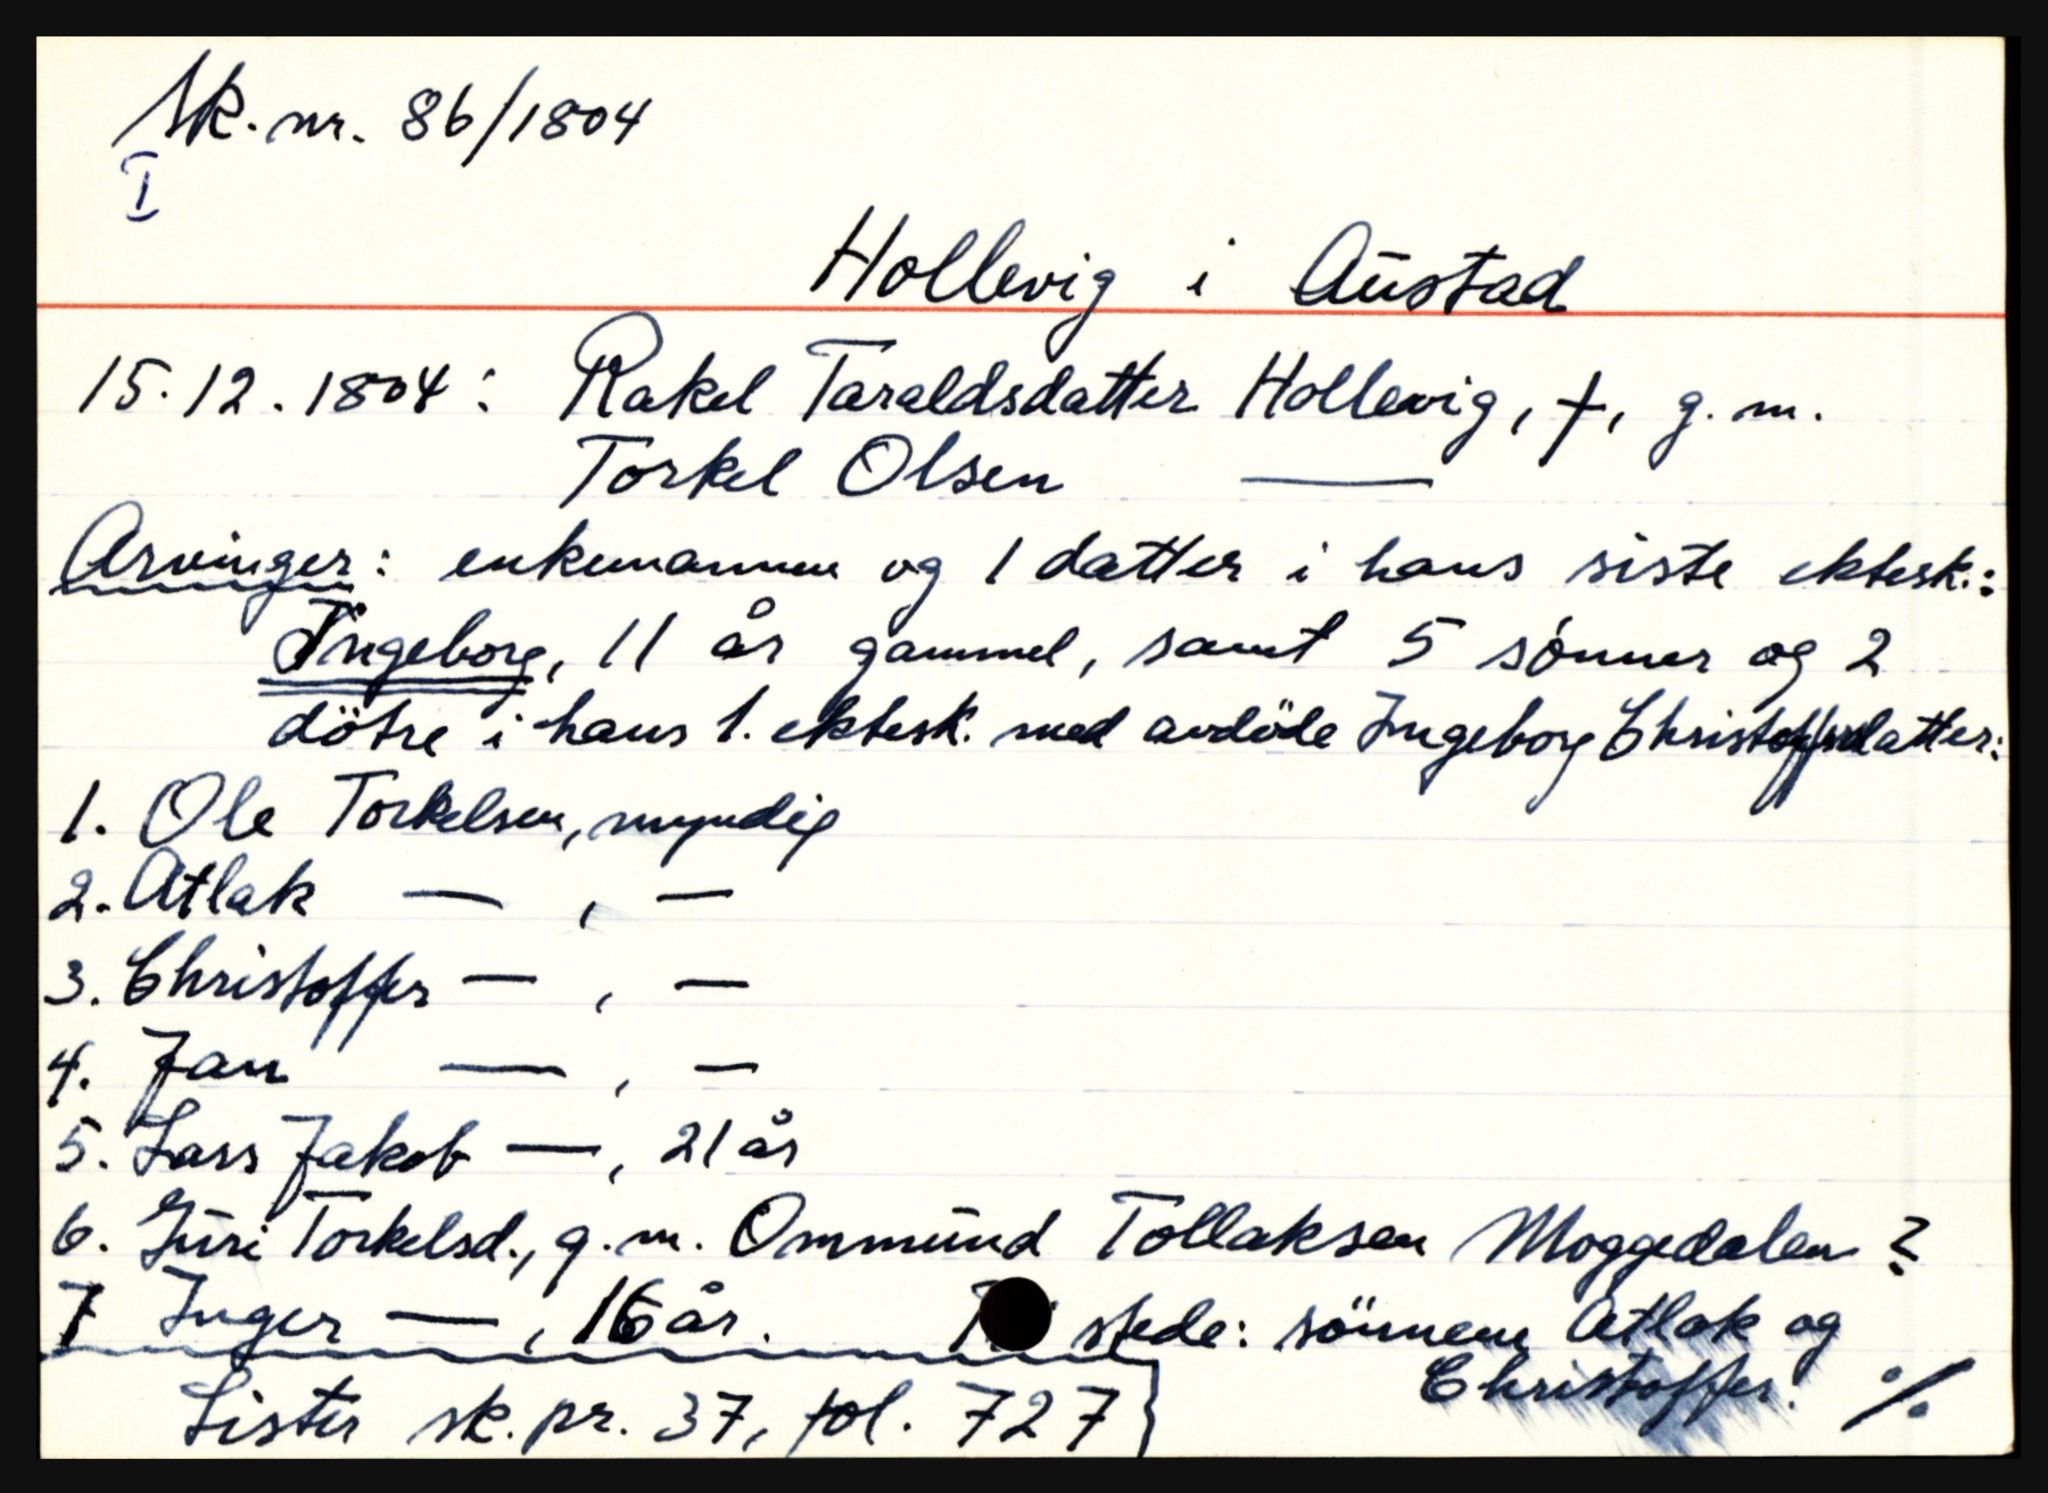 Sk. nr. 86/1804
I
Hollevig i Austad
15.12.1804: Rakel Taraldsdatter Hollevig, †, g. m.
Torkel Olsen —
Arvinger: enkemannen og 1 datter i hans siste ektesk.:
Ingeborg, 11 år gammel, samt 5 sönner og 2
dötre i hans 1. ektesk. med avdöde Ingeborg Christoffersdatter:
1. Ole Torkelsen, myndig
2. Atlak — , —
3. Christoffer — , —
4. Jan — , —
5. Lars Jakob —, 21 år
6. Juri Torkelsd., g. m. Ommund Tollaksen Moggedalen ?
7 Inger — , 16 år. stede: sönnene Atlak og
Christoffer. ./.
Lister sk. pr. 37, fol. 727